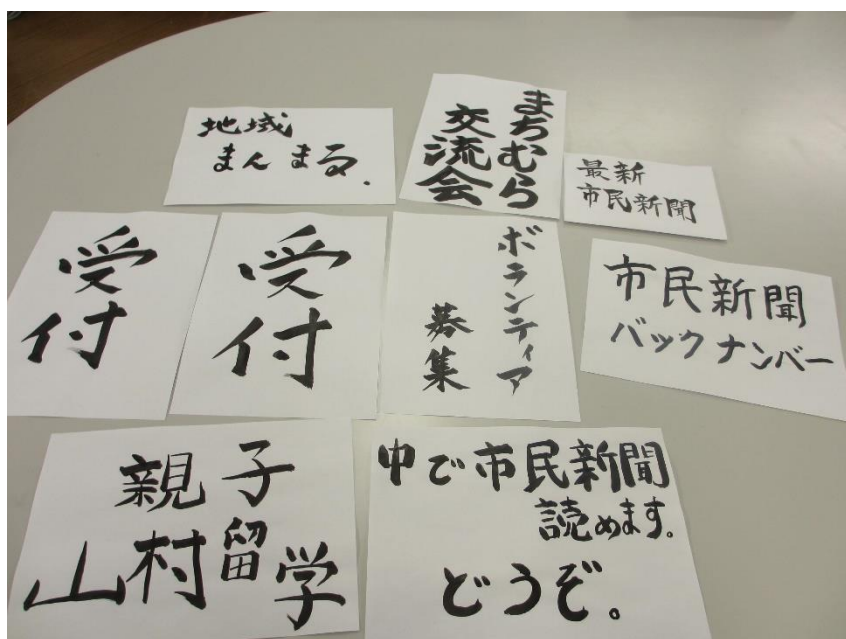 地域
まんまる.
まちむら
交流会
最新
市民新聞
受付
受付
ボランティア
募集
市民新聞
バックナンバー
親子
山村留学
中で市民新聞
読めます。
どうぞ。